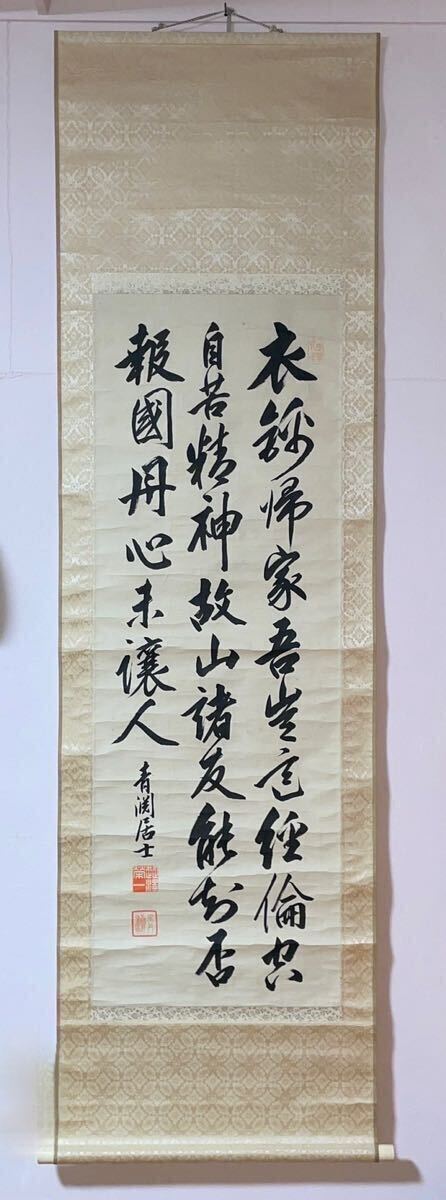 衣錦帰家吾豈經倫空
自苦精神故山諸友能知否
報國丹心未讓人
青淵居士
澁澤榮一